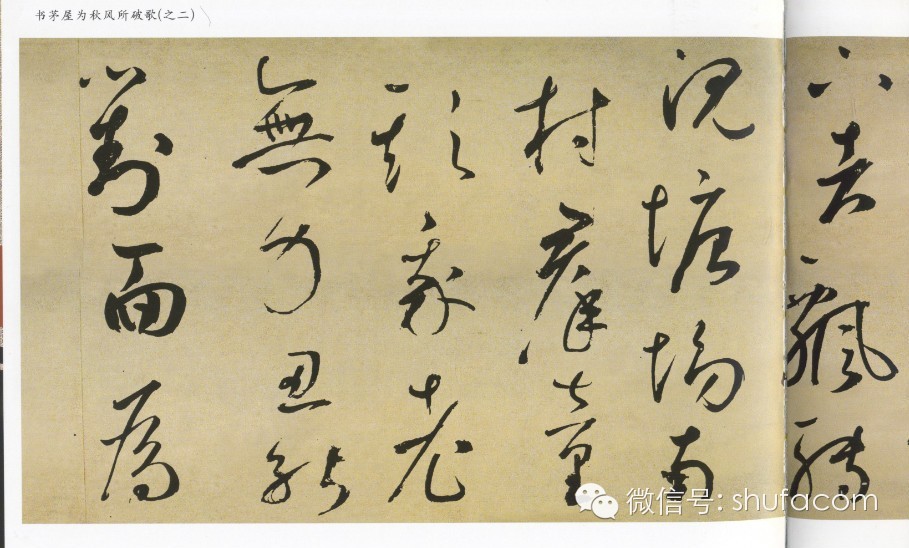 书茅屋为秋风所破歌(之二)
下者飄轉
沉塘坳南
村羣童
欺我老
無力忍能
對面為
微信号: shufacom